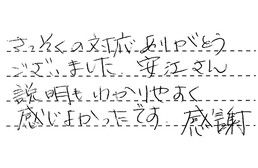 さっそくの対応ありがとう
ございました 安江さん
説明もわかりやすく
感じよかったです 感謝